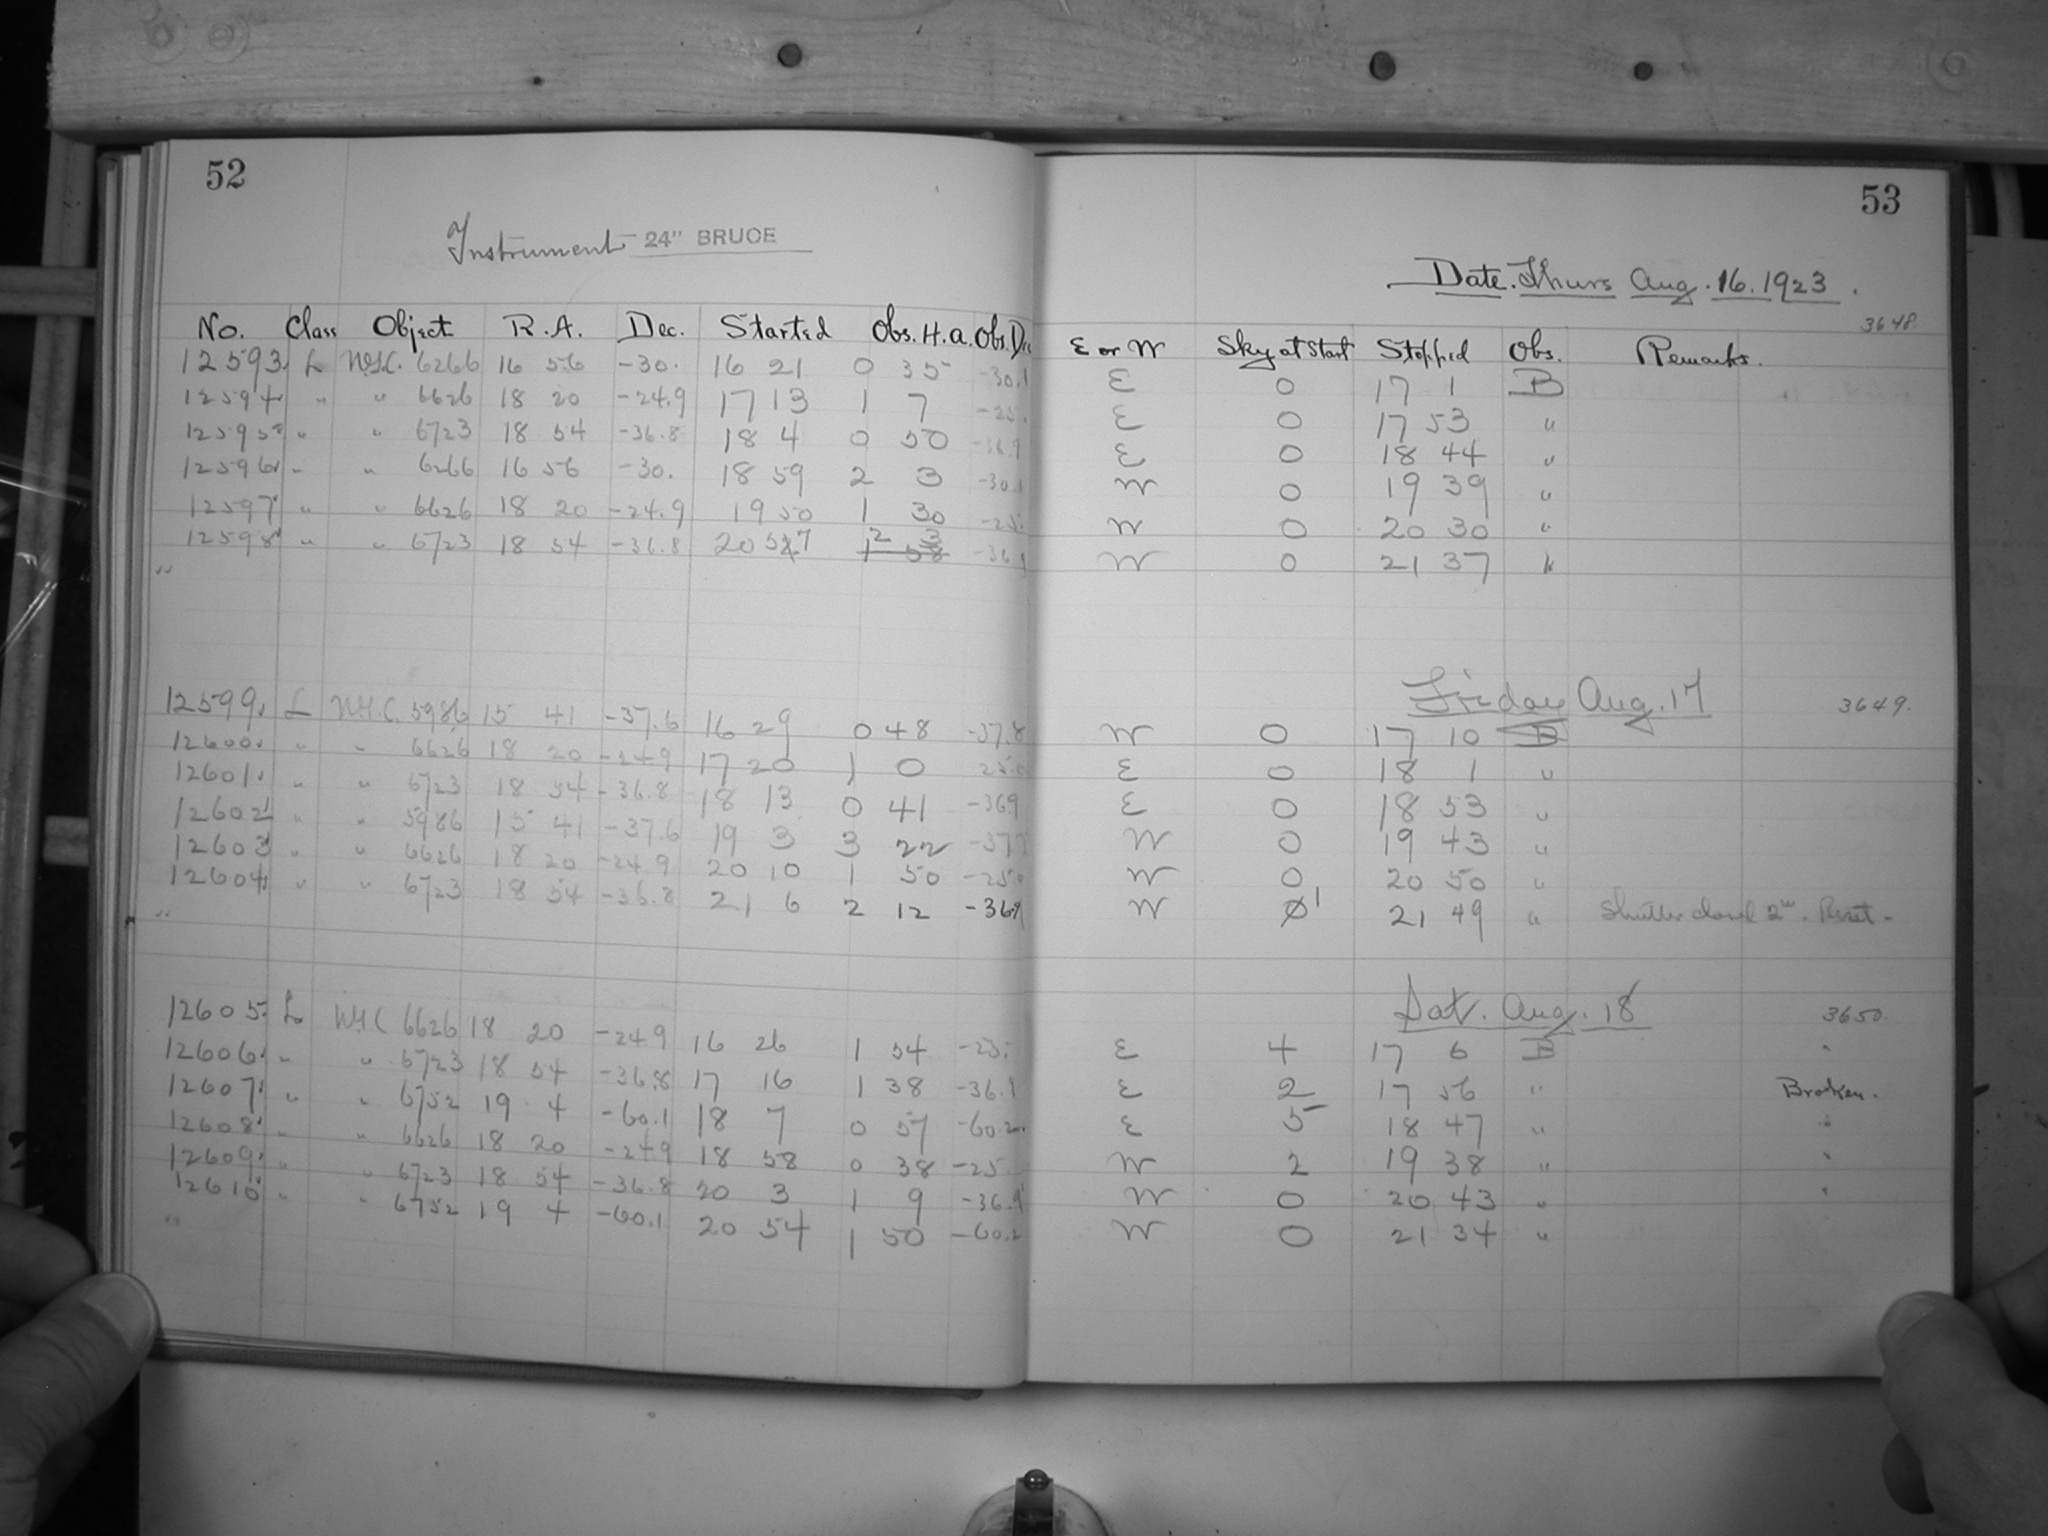 52
Instrument 24" BRUCE
No. Class Object R.A. Dec. Started Obs. H.a. Obs. Dec
12593 L N.G.C. 6266 16 56 -30. 16 21 0 35 -30.1
12594 " " 6626 18 20 -24.9 17 13 1 7 -25.
12595 " " 6723 18 54 -36.8 18 4 0 50 -36.9
12596 " " 6266 16 56 -30. 18 59 2 3 -30.1
12597 " " 6626 18 20 -24.9 19 50 1 30 -25.
12598 " " 6723 18 54 -36.8 20 57 2 3 -36.9
"
12599 L N.G.C. 5986 15 41 -37.6 16 29 0 48 -37.8
12600 " " 6626 18 20 -24.9 17 20 1 0 25.0
12601 " " 6723 18 54 -36.8 18 13 0 41 -369
12602 " " 5986 15 41 -37.6 19 3 3 22 -377
12603 " " 6626 18 20 -24.9 20 10 1 50 -25.0
12604 " " 6723 18 54 -36.8 21 6 2 12 -369
"
12605 L N.G.C 6626 18 20 -24.9 16 26 1 54 -25.
12606 " " 6723 18 54 -36.8 17 16 1 38 -36.9
12607 " " 6752 19 4 -60.1 18 7 0 57 -60.2
12608 " " 6626 18 20 -24.9 18 58 0 38 -25
12609 " " 6723 18 54 -36.8 20 3 1 9 -36.9
12610 " " 6752 19 4 -60.1 20 54 1 50 -60.2
"
53
Date. Thurs Aug. 16. 1923.
3648.
E or W Sky at Start Stopped Obs. Remarks.
E 0 17 1 B
E 0 17 53 "
E 0 18 44 "
W 0 19 39 "
W 0 20 30 "
W 0 21 37 "
Friday Aug. 17 3649.
W 0 17 10 B
E 0 18 1 "
E 0 18 53 "
W 0 19 43 "
W 0 20 50 "
W 0 1 21 49 " Shutter closed 2m. Reset.
Sat. Aug. 18 3650.
E 4 17 6 B "
E 2 17 56 " Broken.
E 5 18 47 " "
W 2 19 38 " "
W 0 20 43 " "
W 0 21 34 "